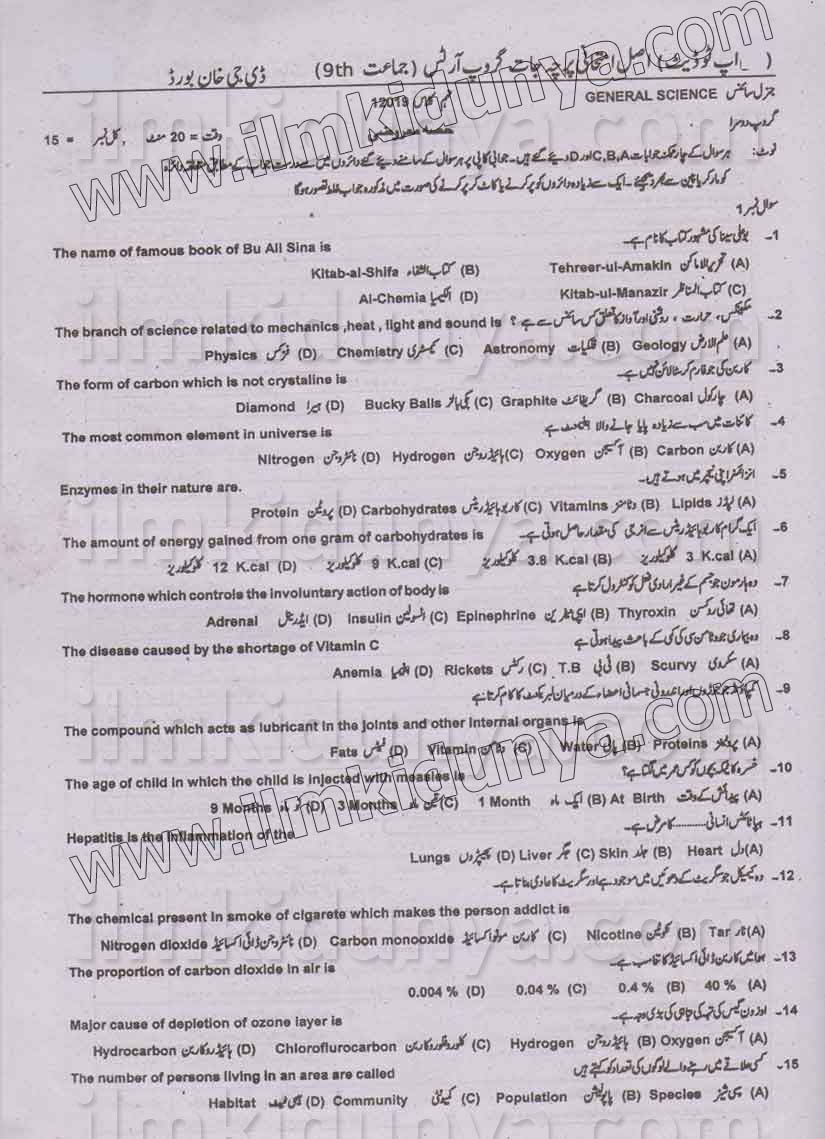 ( _اپ ٹو ڈیٹ) اصل امتحانی پرچہ جات گروپ آرٹس (جماعت 9th) ڈی جی خان بورڈ
جنرل سائنس GENERAL SCIENCE نہم کلاس 12019
گروپ دوسرا حصہ معروضی وقت = 20 منٹ , کل نمبر = 15
نوٹ: ہر سوال کے چار ممکنہ جوابات C,B,A اور D دیئے گئے ہیں۔ جوابی کاپی پر ہر سوال کے سامنے دیئے گئے دائروں میں سے درست جواب کے مطابق متعلقہ دائرہ
کو مارکر یا پین سے بھر دیجئیے۔ ایک سے زیادہ دائروں کو پر کرنے یا کاٹ کر پر کرنے کی صورت میں مذکورہ جواب غلط تصور ہوگا
سوال نمبر 1
1۔ بوعلی سینا کی مشہور کتاب کا نام ہے۔ The name of famous book of Bu Ali Sina is
(A) تحریر الاماکن Tehreer-ul-Amakin (B) کتاب الشفاء Kitab-al-Shifa
(C) کتاب المناظر Kitab-ul-Manazir (D) الکیمیا Al-Chemia
2۔ مکینکس ، حرارت ، روشنی اور آواز کا تعلق کس سائنس سے ہے ؟ The branch of science related to mechanics ,heat , light and sound is
(A) علم الارض Geology (B) فلکیات Astronomy (C) کیمسٹری Chemistry (D) فزکس Physics
3۔ کاربن کی جو فارم کرسٹلائن نہیں ہے۔ The form of carbon which is not crystaline is
(A) چارکول Charcoal (B) گریفائٹ Graphite (C) بکی بالز Bucky Balls (D) ہیرا Diamond
4۔ کائنات میں سب سے زیادہ پایا جانے والا ایلیمنٹ ہے The most common element in universe is
(A) کاربن Carbon (B) آکسیجن Oxygen (C) ہائیڈروجن Hydrogen (D) نائٹروجن Nitrogen
5۔ انزائمز اپنی نیچر میں ہوتے ہیں۔ Enzymes in their nature are.
(A) لپڈز Lipids (B) وٹامنز Vitamins (C) کاربوہائیڈریٹس Carbohydrates (D) پروٹین Protein
6۔ ایک گرام کاربوہائیڈریٹس سے انرجی کی مقدار حاصل ہوتی ہے۔ The amount of energy gained from one gram of carbohydrates is
(A) 3 K.cal کلوکیلوریز (B) 3.8 K.cal کلوکیلوریز (C) 9 K.cal کلوکیلوریز (D) 12 K.cal کلوکیلوریز
7۔ وہ ہارمون جو جسم کے غیر ارادی فعل کو کنٹرول کرتا ہے The hormone which controls the involuntary action of body is
(A) تھائی روکسن Thyroxin (B) ایپی نیفرین Epinephrine (C) انسولین Insulin (D) ایڈرینل Adrenal
8۔ وہ بیماری جو وٹامن سی کی کمی کے باعث پیدا ہوتی ہے The disease caused by the shortage of Vitamin C
(A) سکروی Scurvy (B) ٹی بی T.B (C) رکٹس Rickets (D) انیمیا Anemia
9۔ کمپاؤنڈ جو جوڑوں اور اندرونی جسمانی اعضاء کے درمیان لبریکنٹ کا کام کرتا ہے
The compound which acts as lubricant in the joints and other internal organs is
(A) پروٹینز Proteins (B) پانی Water (C) وٹامن Vitamin (D) فیٹس Fats
10۔ خسرہ کا ٹیکہ بچوں کو کس عمر میں لگتا ہے؟ The age of child in which the child is injected with measles is
(A) پیدائش کے وقت At Birth (B) ایک ماہ 1 Month (C) تین ماہ 3 Months (D) نو ماہ 9 Months
11۔ ہیپاٹائٹس انسانی ........... کا مرض ہے۔ Hepatitis is the inflammation of the
(A) دل Heart (B) جلد Skin (C) جگر Liver (D) پھیپھڑوں Lungs
12۔ وہ کیمیکل جو سگریٹ کے دھوئیں میں موجود ہے اور سگریٹ کا عادی بناتا ہے۔
The chemical present in smoke of cigarete which makes the person addict is
(A) ٹار Tar (B) نکوٹین Nicotine (C) کاربن مونوآکسائیڈ Carbon monooxide (D) نائٹروجن ڈائی آکسائیڈ Nitrogen dioxide
13۔ ہوا میں کاربن ڈائی آکسائیڈ کا تناسب ہے۔ The proportion of carbon dioxide in air is
(A) 40 % (B) 0.4 % (C) 0.04 % (D) 0.004 %
14۔ اوزون گیس کی تہہ کی تباہی کی بڑی وجہ ہے۔ Major cause of depletion of ozone layer is
(A) آکسیجن Oxygen (B) ہائیڈروجن Hydrogen (C) کلوروفلوروکاربن Chloroflurocarbon (D) ہائیڈروکاربن Hydrocarbon
15۔ کسی علاقے میں رہنے والے لوگوں کی تعداد کو کہتے ہیں The number of persons living in an area are called
(A) سپی شیز Species (B) پاپولیشن Population (C) کمیونٹی Community (D) ہیبی ٹیٹ Habitat
www.ilmkidunya.com
www.ilmkidunya.com
ilmkidunya.com